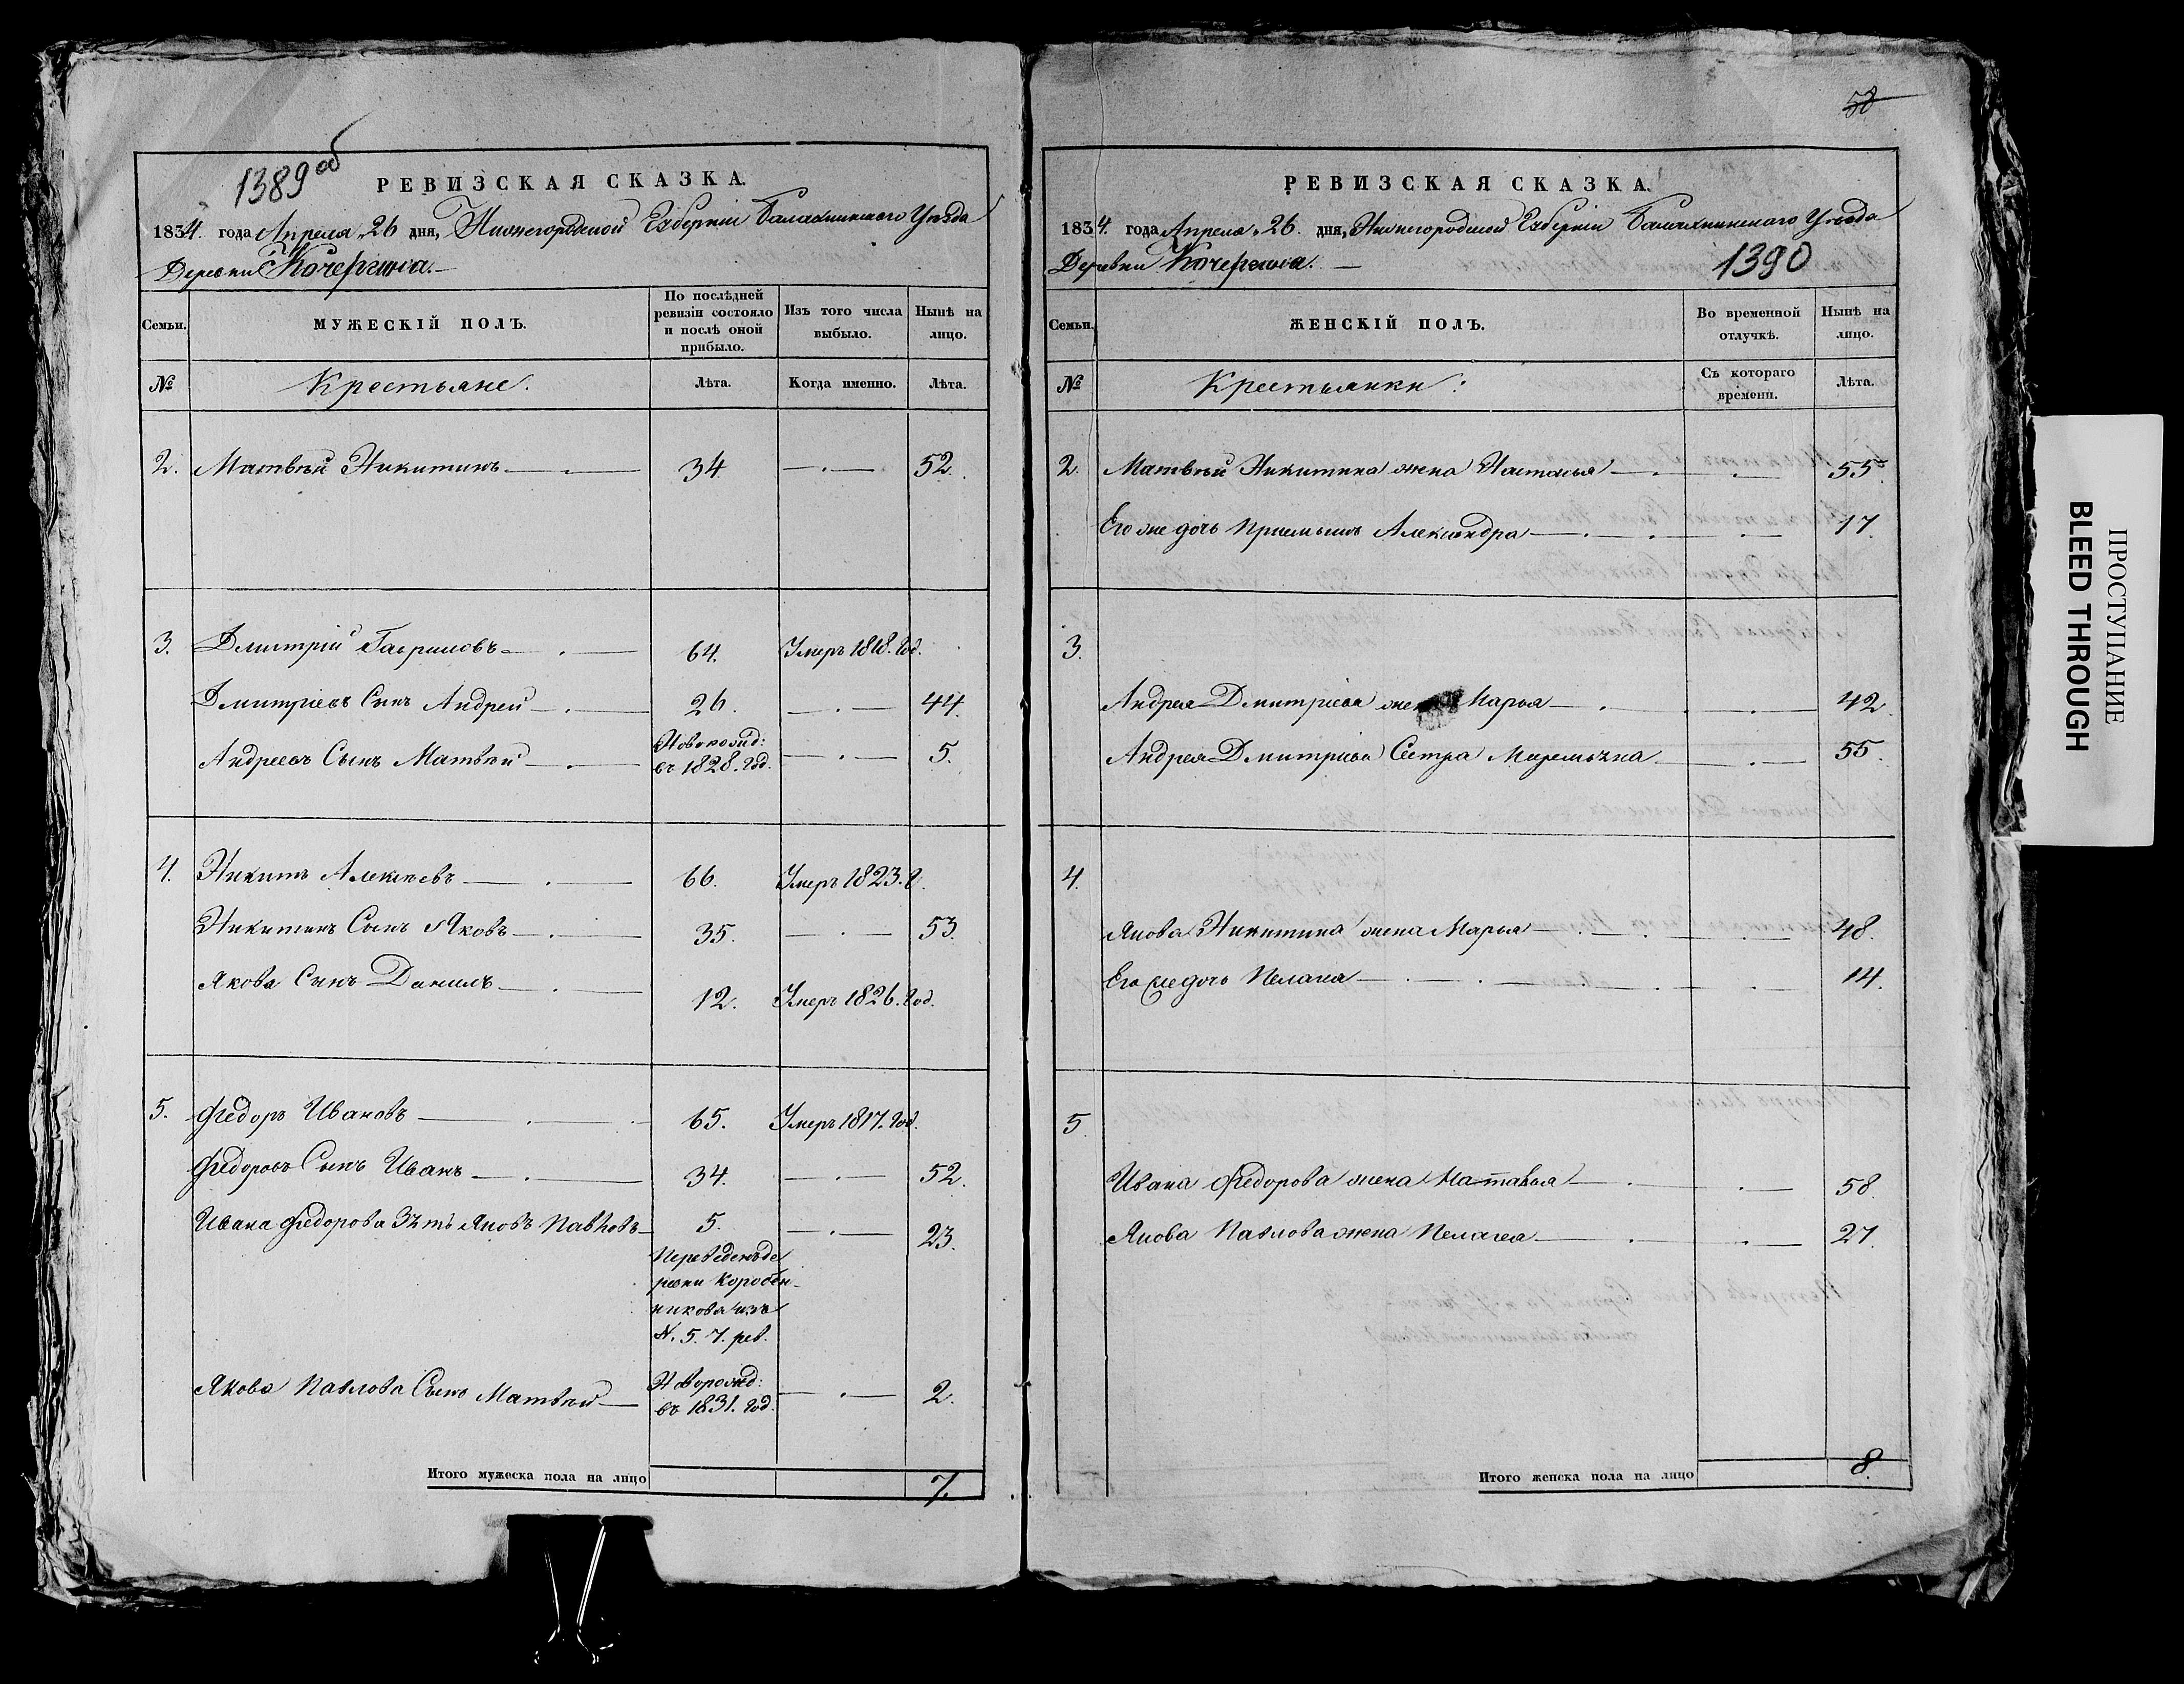 1389 об
РЕВИЗСКАЯ СКАЗКА.
1834. года Апреля 26 дня, Нижегородской Губернiи Балахнинского Уѣзда
Деревни Кочергина.
Семьи.
МУЖЕСКIЙ ПОЛЪ.
По послѣдней ревизiи состояло и послѣ оной прибыло.
Изъ того числа выбыло.
Нынѣ на лицо.
№
Крестьяне.
Лѣта.
Когда именно.
Лѣта.
2. Матвѣй Никитинъ 34. 52.
3. Дмитрiй Гавриловъ 64. Умеръ 1818. год.
Дмитрiевъ Сынъ Андрей 26. 44.
Андреевъ Сынъ Матвѣй Новорожд: въ 1828. год. 5.
4. Никита Алексѣевъ 66. Умеръ 1823. г.
Никитинъ Сынъ Яковъ 35. 53.
Якова Сынъ Данилъ 12. Умеръ 1826. год.
5. Федоръ Ивановъ 65. Умеръ 1817. год.
Федоровъ Сынъ Иванъ 34. 52.
Ивана Федорова Зять Яковъ Павловъ 5. 23.
Переведенъ де
ревни Коробен-
никова изъ
N. 5. 7. рев.
Якова Павлова Сынъ Матвѣй Новорожд: въ 1831. год. 2.
Итого мужеска пола на лицо 7.
58
РЕВИЗСКАЯ СКАЗКА.
1834. года Апреля 26. дня, Нижегородской Губернiи Балахнинского Уѣзда
Деревни Кочергина. 1390
Семьи.
ЖЕНСКIЙ ПОЛЪ.
Во временной отлучкѣ.
Нынѣ на лицо.
№
Крестьянки:
Съ котораго времени.
Лѣта.
2. Матвѣй Никитина жена Настасья 55.
Его же дочь Приемышъ Александра 17.
3.
Андрея Дмитрiева жена Марья 42.
Андрея Дмитрiева Сестра 55.
4.
Якова Никитина жена Марья 48.
Его же дочь Пелагея 14.
5
Ивана Федорова жена 58.
Якова Павлова жена Пелагея 27.
Итого женска пола на лицо 8.
ПРОСТУПАНИЕ
BLEED THROUGH